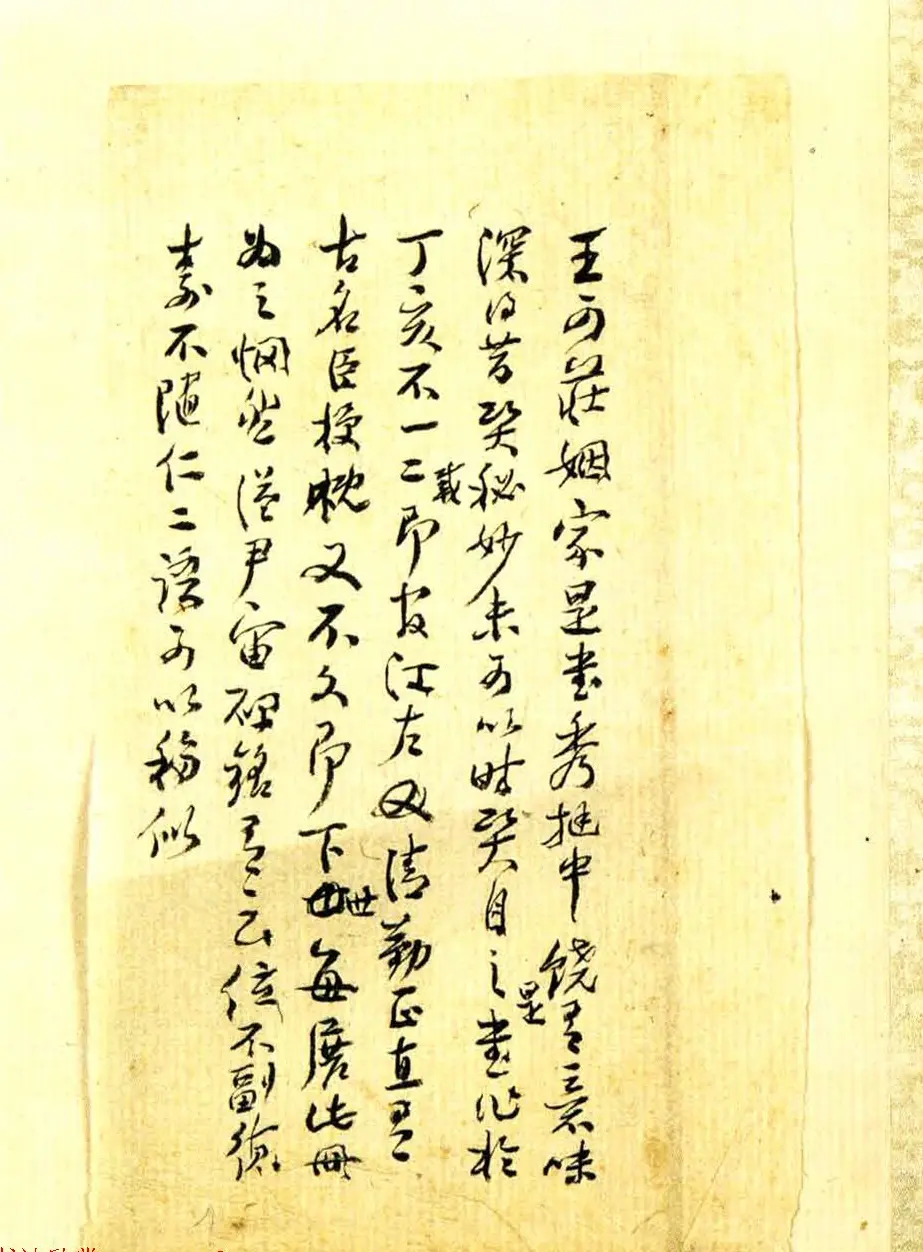 王可莊姻家是書秀挺中饒有意味
深得昔賢秘妙未可以時賢目之是書作於
丁亥不一二載即官江左以清勤正直有
古名臣又不久即下世每展此冊
為之惘然溢尹宙碑銘有云位不副德
壽不隨仁二語可以移似